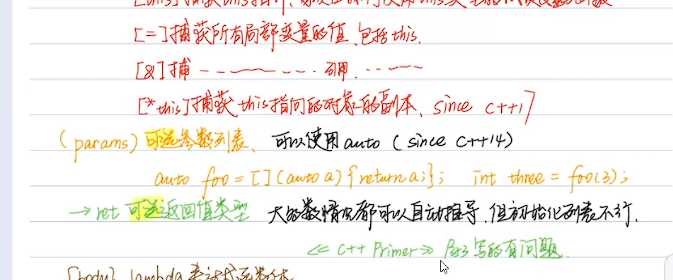 [=]捕获所有局部变量的值,包括this.
[&]捕 引用
[*this]捕获this指向的对象的副本, since C++17
(params) 可选参数列表、可以使用auto (since C++14)
auto foo = [](auto a){return a;}; int three = foo(3);
→ret 可选返回值类型 大多数情况都可以自动推导,但初始化列表不行,
<<C++ Primer>> 写的有问题.
[body] lambda表达式函数体